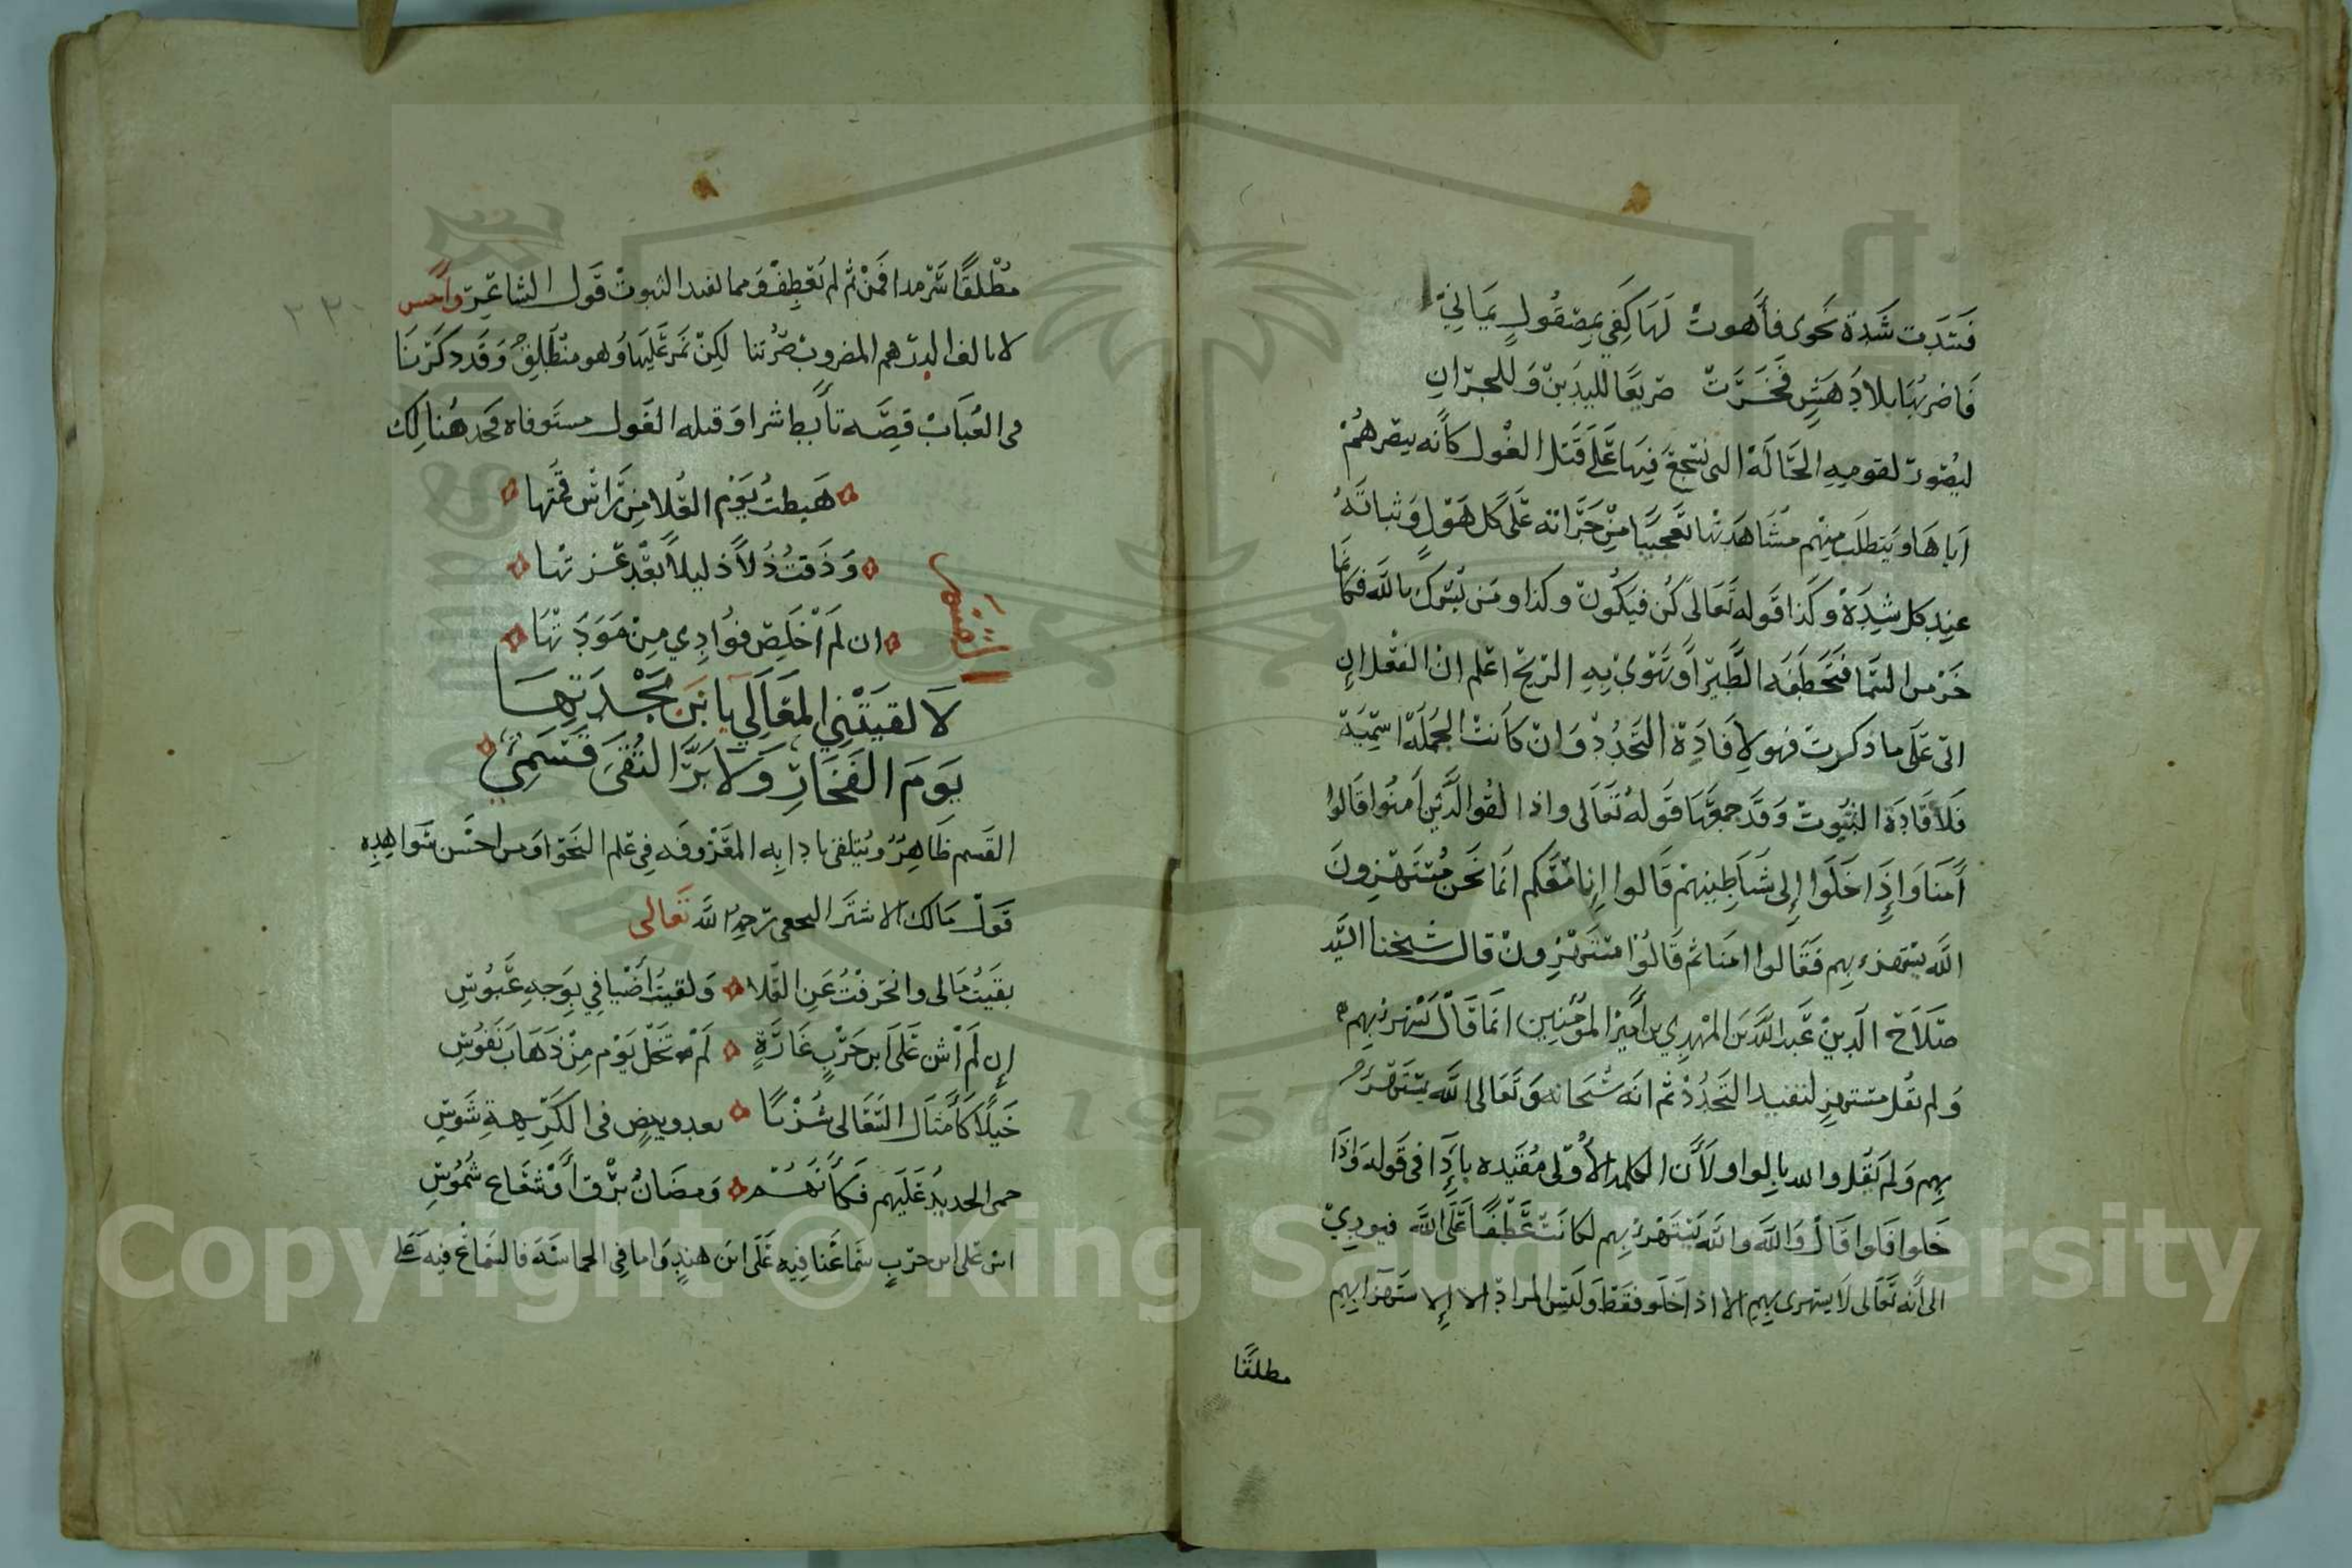 فَشَدَّت شَدةً نحوى فأهوتْ لَهَا كَفِي بِمِصْقُولٍ يَمَانِيّ
فَاضربُهَا بلا دَهَشٍ فَخَرَّتْ صَرِيعًا لليدَينْ وَللجِرَانِ
ليُصَوِرَ لقومِهِ الحَالَةْ التى تشجعَ فِيهَا عَلَى قَتل الغُول كأنه يبصرهُمْ
اياهَا ويَتطلَب مِنْهِم مشَاهَدَتهَا تعجيبًا مِنْ جَرَاته عَلَى كل هَوْلٍ وَثباتهُ
عنِد كل شِدَةْ وكَذا قَوله تَعَالى كُن فيَكُونْ وكذا ومَن يُشرك بالله فكَانما
خَرّ من السَّمَا فتَخطَفَه الطَّيْر أو تَهَوِيْ بِهِ الريْح اعْلم انْ الفعْل ان
اتى عَلَى ما ذكرتْ فهو لاِفَادِةْ التَجَدُدْ وَان كَانتْ الجُملَةْ اسْمِيَة
فَلأفَادَةْ الثبُوتْ وَقَد جمعَهَا قَولهُ تَعَالى واذا لقُوا الذَّيْن آمنُوا قَالوا
آمَنا وَاذِا خَلَوا إِلى شَيَاطِينهمْ قَالوا اِنا مَعَكم انمَا نحَن مُسْتَهزِونَ
الله يستهزء بهم فَقَالوا امنا ثم قَالُوْا مسْتَهْزِونْ قال شيخنا السَّيد
صَلَاحْ الَدِينْ عَبد الله بن المهْدِي بن أميْر المؤمْنِين انمَا قَالْ يَسْتَهزئ بهم
وَلم يقُل مستهزِ لتفيد التَجَدُدْ ثم انَه سُبحَانه وَتَعَالى الله يَسْتَهزئ
بهِم وَلم يَقُل والله بالواو لأَن الكلمه الأوْلى مُقيَده باذَا فى قَوله وَاذَا
خَلوا فلو قَالْ وَالله والله يَسْتَهْزئ بِهِم لكانَتْ عَطْفًا عَلَى الله فيودِيْ
الى أنه تَعَالى لَا يستهزى بهِم الا اذا خَلَو فقط وَليَس المراد الا الاستهزا بهِم
مطلقًا
مُطْلقًا سَرْمدا فَمِنْ ثم لم يَعْطِفْ ومما لفيد الثبوتْ قَول الشاعَر وأحسن
لا يالف الدرهم المضروبْ صُرَّتنا لكِنْ يمَر عَلَيهَا وَهو منْطَلِقْ وَقَد ذكَرْنَا
فى العُبَابْ قِصَّة تأَبط شرا وَقتله الغَول مستَوفاه فخذ هُنالِك
هَبطتُ يَوْم العُلا مِن رَاسْ قمتها
وَذَقتُ ذُلاً ذليلاً بعْد عَزتهْا
ان لَم اَخْلَصِ فوُادِي مِنْ مَوَدَتهَا
القسَم
لَا لقيَتْني المعَالِي يا بنَ بَجْدَتِهَا
يَومَ الفَخَارِ وَلَا بَرَّ التُقَى قَسَمِيْ
القَسم ظَاهِرْ ويُتلقى بادابِه المعْرُوفَه فِي عْلم النَحْو وَمن احسْن شوَاهدِه
قَولْ مَالك الاشتَر النخعى رَحِمه الله تَعالى
بقيَتُ مَالى وانحَرفْتُ عَنِ العُلا وَلقيتُ أضْيافي بوَجهِ عَبُوسِ
إِن لَم أشُن عَلَى ابن حَرْبٍ غَارَةٍ لَم تَخلْ يَوْم مِنْ ذَهَابَ نَفوُسِ
خَيلًا كَأَمثَال السَّعَالى شُزْبًا تعدو ببيضٍ فى الكَرِيهِةِ شوسِ
حمى الحديدُ عَلَيهِم فكأنهُمْ وَمضَانُ بَرْق أَوْ شعَاع شُمُوسِ
اشن عَلى ابن حرْبٍ سمَاعَنا فيه عَلَى ابن هندٍ وَاما فِى الحماسَة فَالسَماعْ فيه عَلى